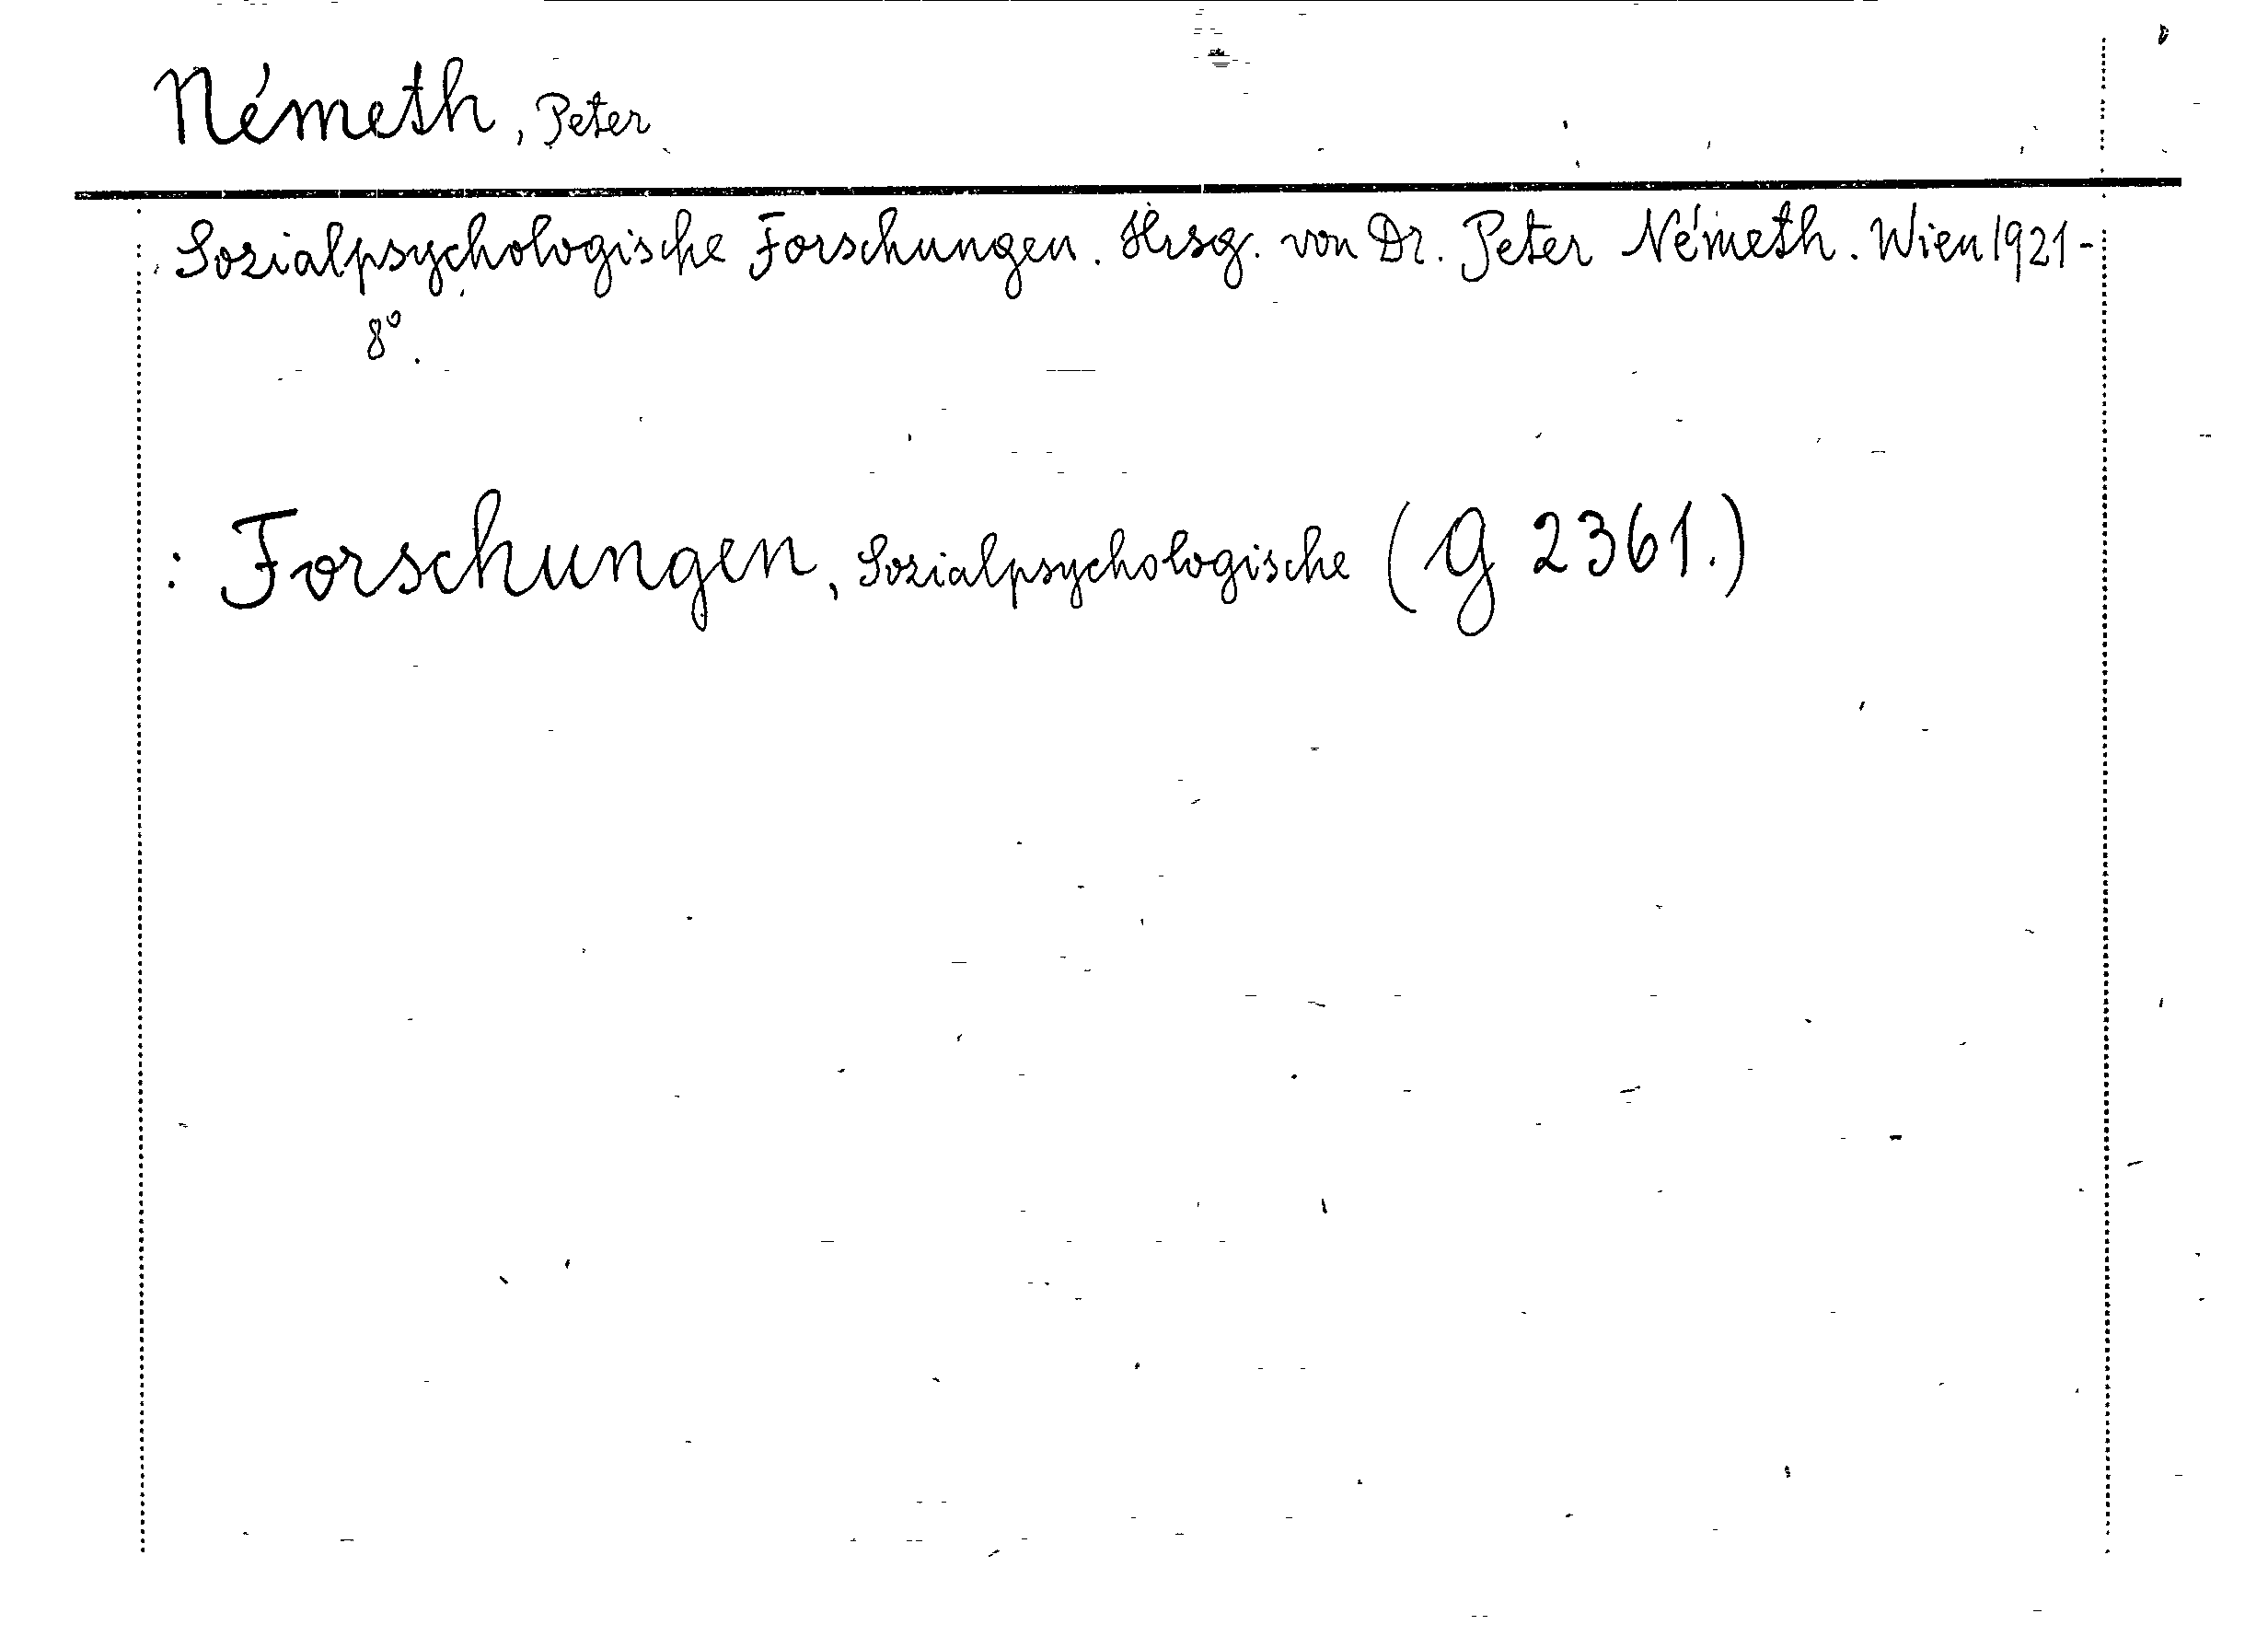 Németh, Peter
Sozialpsychologische Forschungen. Hrsg. von Dr. Peter Németh. Wien 1921-
8°.
: Forschungen, Sozialpsychologische (G 2361.)